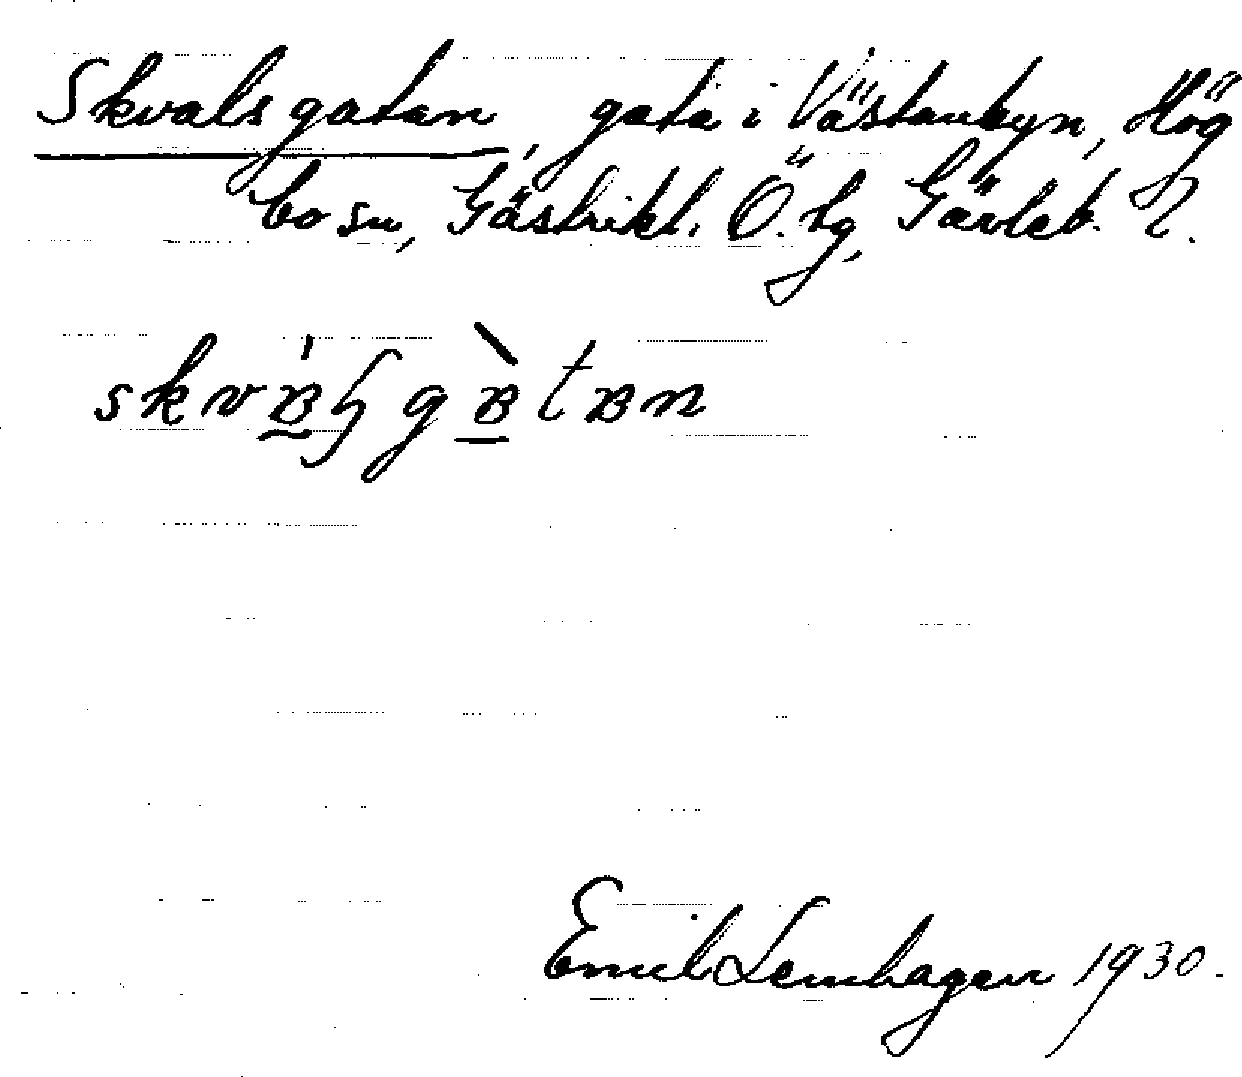 Skvalsgatan, gata i Västanbyn, Hög
bo sn, Gästrikl. Ö. tg, Gävleb. l.
Emil Lemhagen 1930.